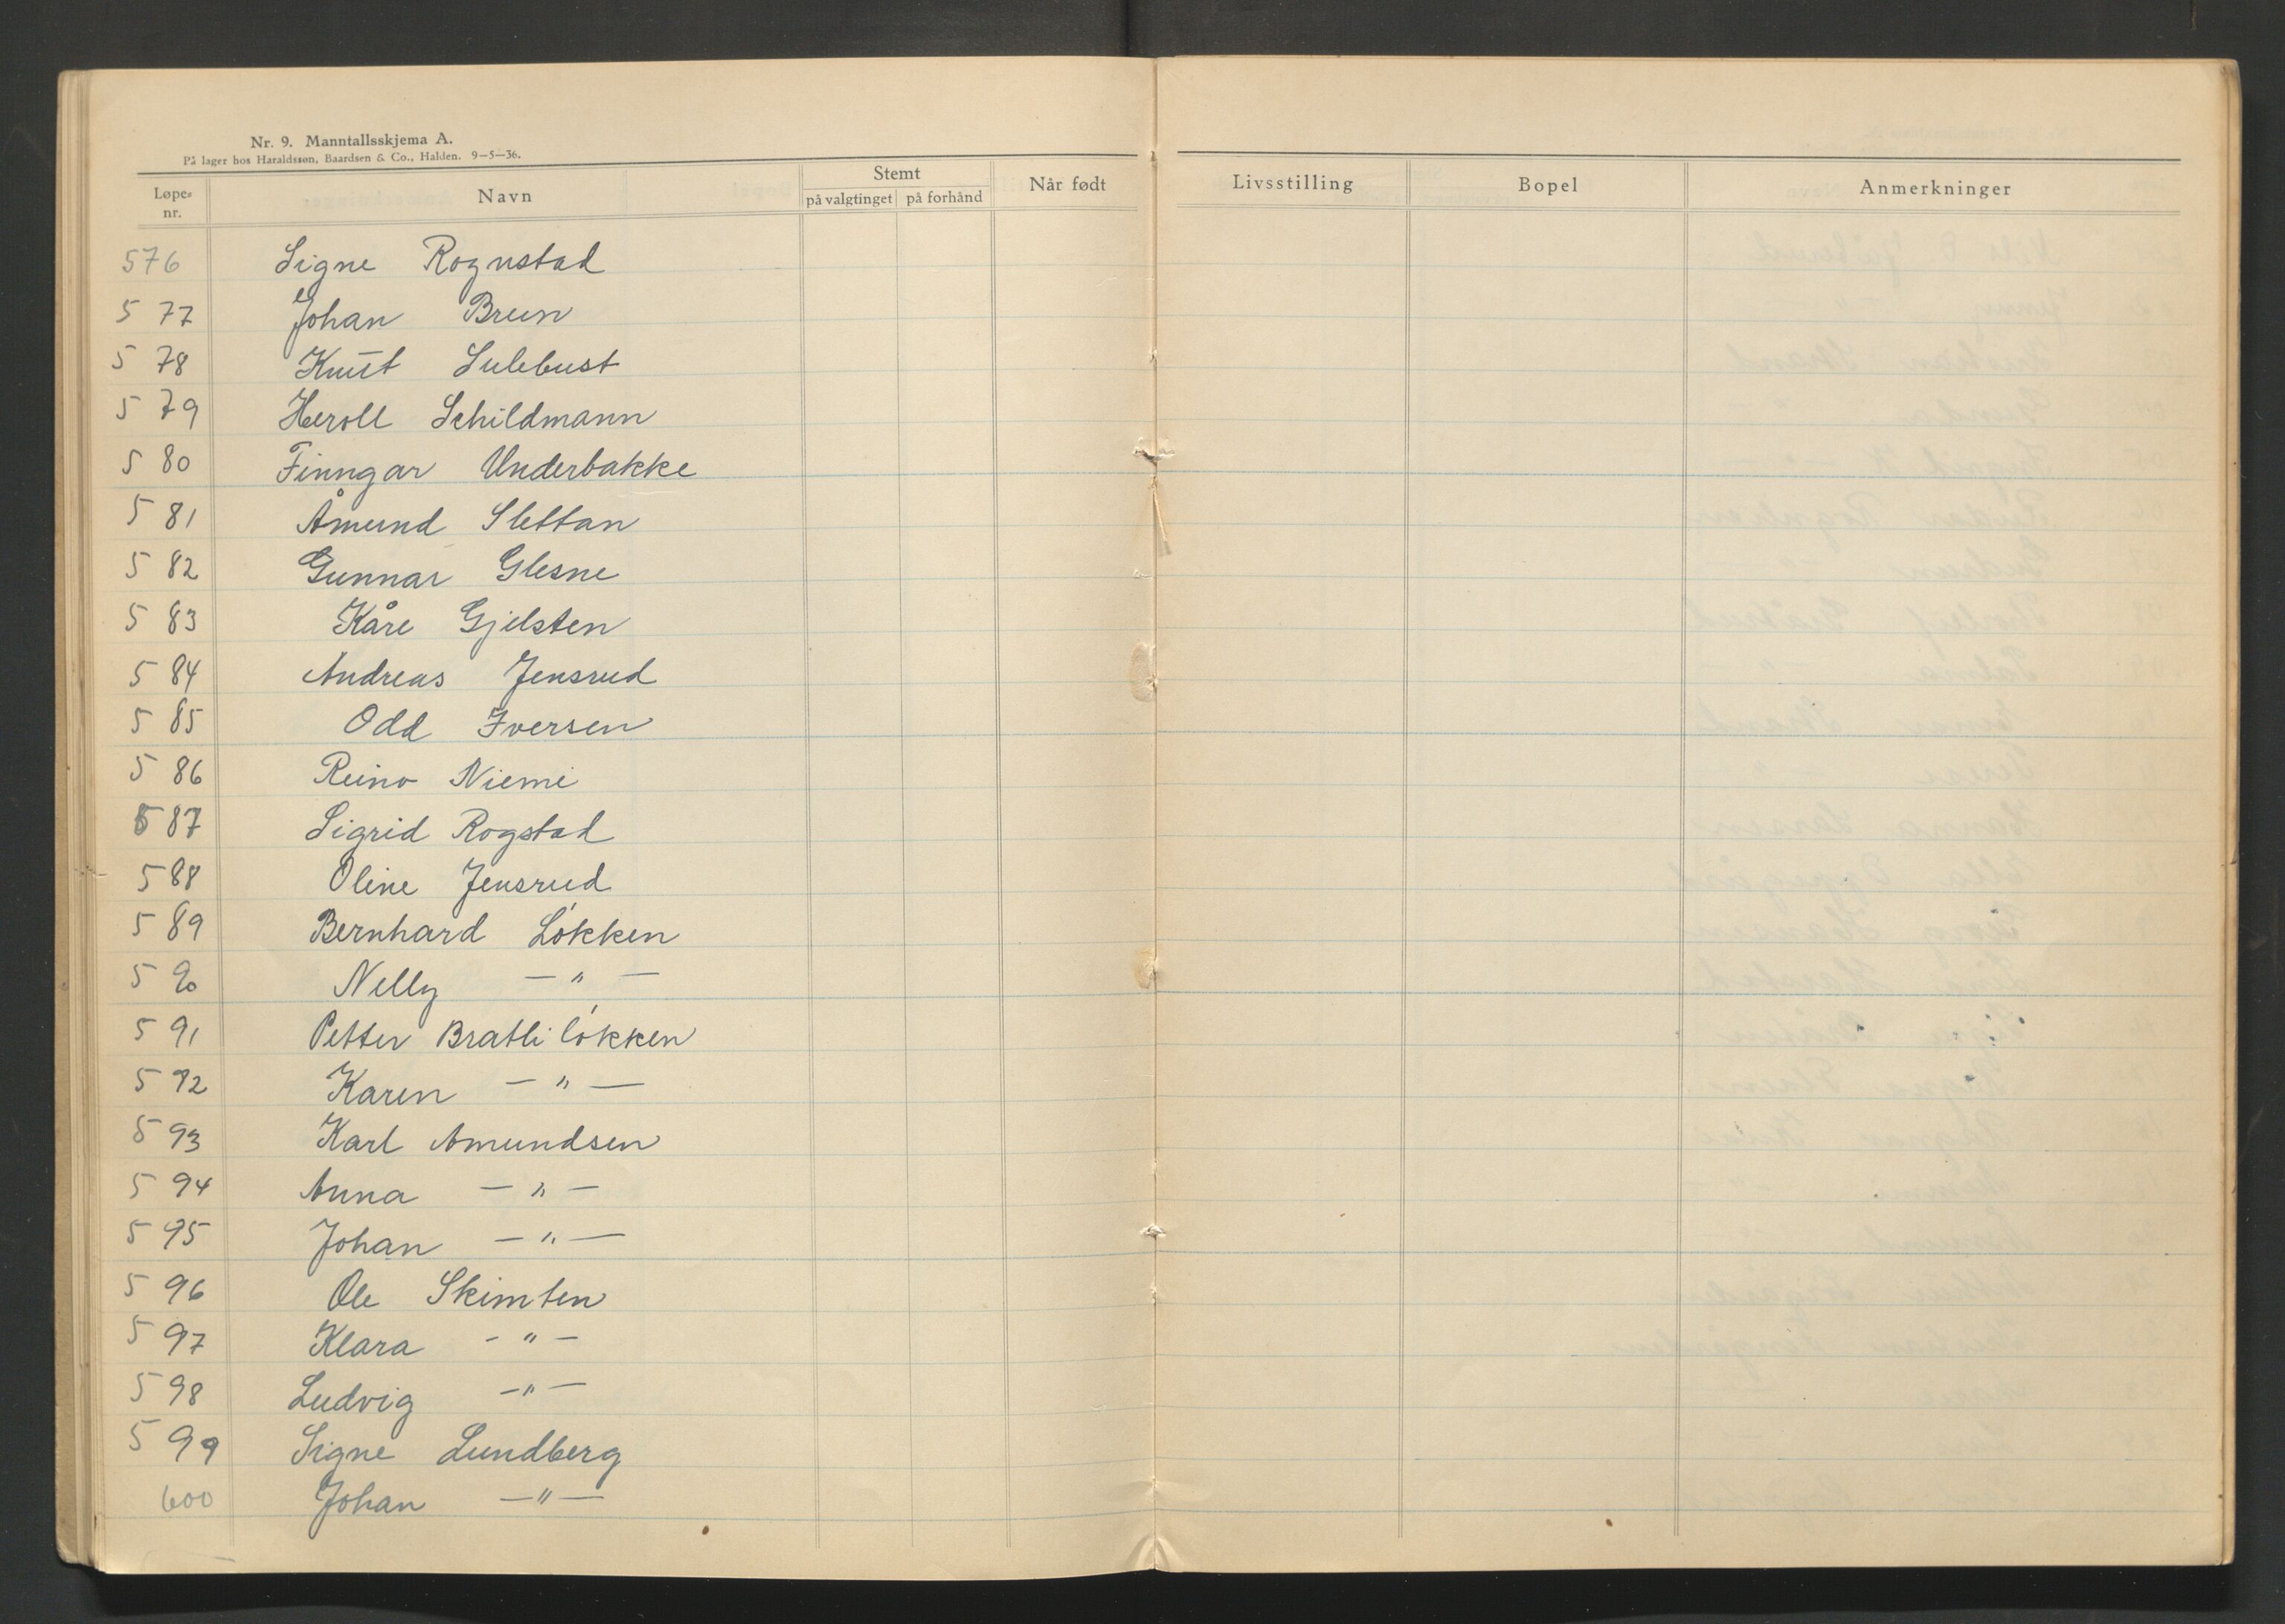 Nr. 9. Manntallsskjema A.
På lager hos Haraldssøn, Baardsen & Co., Halden. 9—5—36.
Løpe-nr. Navn Stemt på valgtinget på forhånd Når født Livsstilling Bopel Anmerkninger
576 Signe Rognstad
577 Johan Brun
578 Knut Sulebust
579 Heroll Schildmann
580 Finngar Underbakke
581 Åmund Slettan
582 Gunnar Glesne
583 Kåre Gjelsten
584 Andreas Jensrud
585 Odd Iversen
586 Reino Niemi
587 Sigrid Rogstad
588 Oline Jensrud
589 Bernhard Løkken
590 Nelly — " —
591 Petter Bratliløkken
592 Karen — " —
593 Karl Amundsen
594 Anna — " —
595 Johan — " —
596 Ole Skimten
597 Klara - " —
598 Ludvig — " —
599 Signe Lundberg
600 Johan — " —